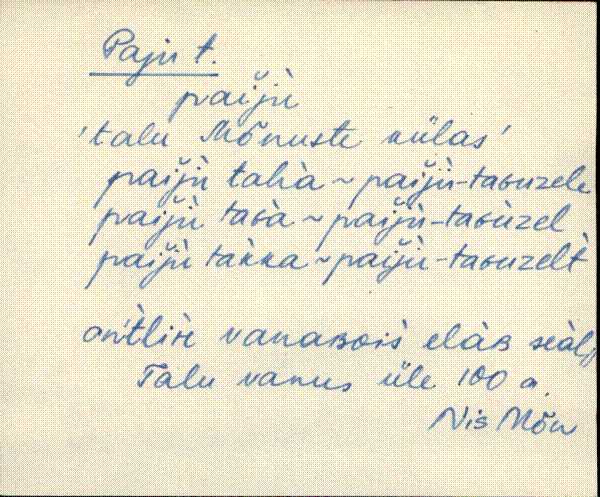 Paju t.
paijù
'talu Mõnuste külas'
paijù tahà ~ paijù-taɢuzele
paijù taɢà ~ paijù-taɢuzel
paijù tàkka ~ paijù-taɢuzelt
vanaʙois elàʙ seàl
Talu vanus üle 100 a.
Nis Mõn